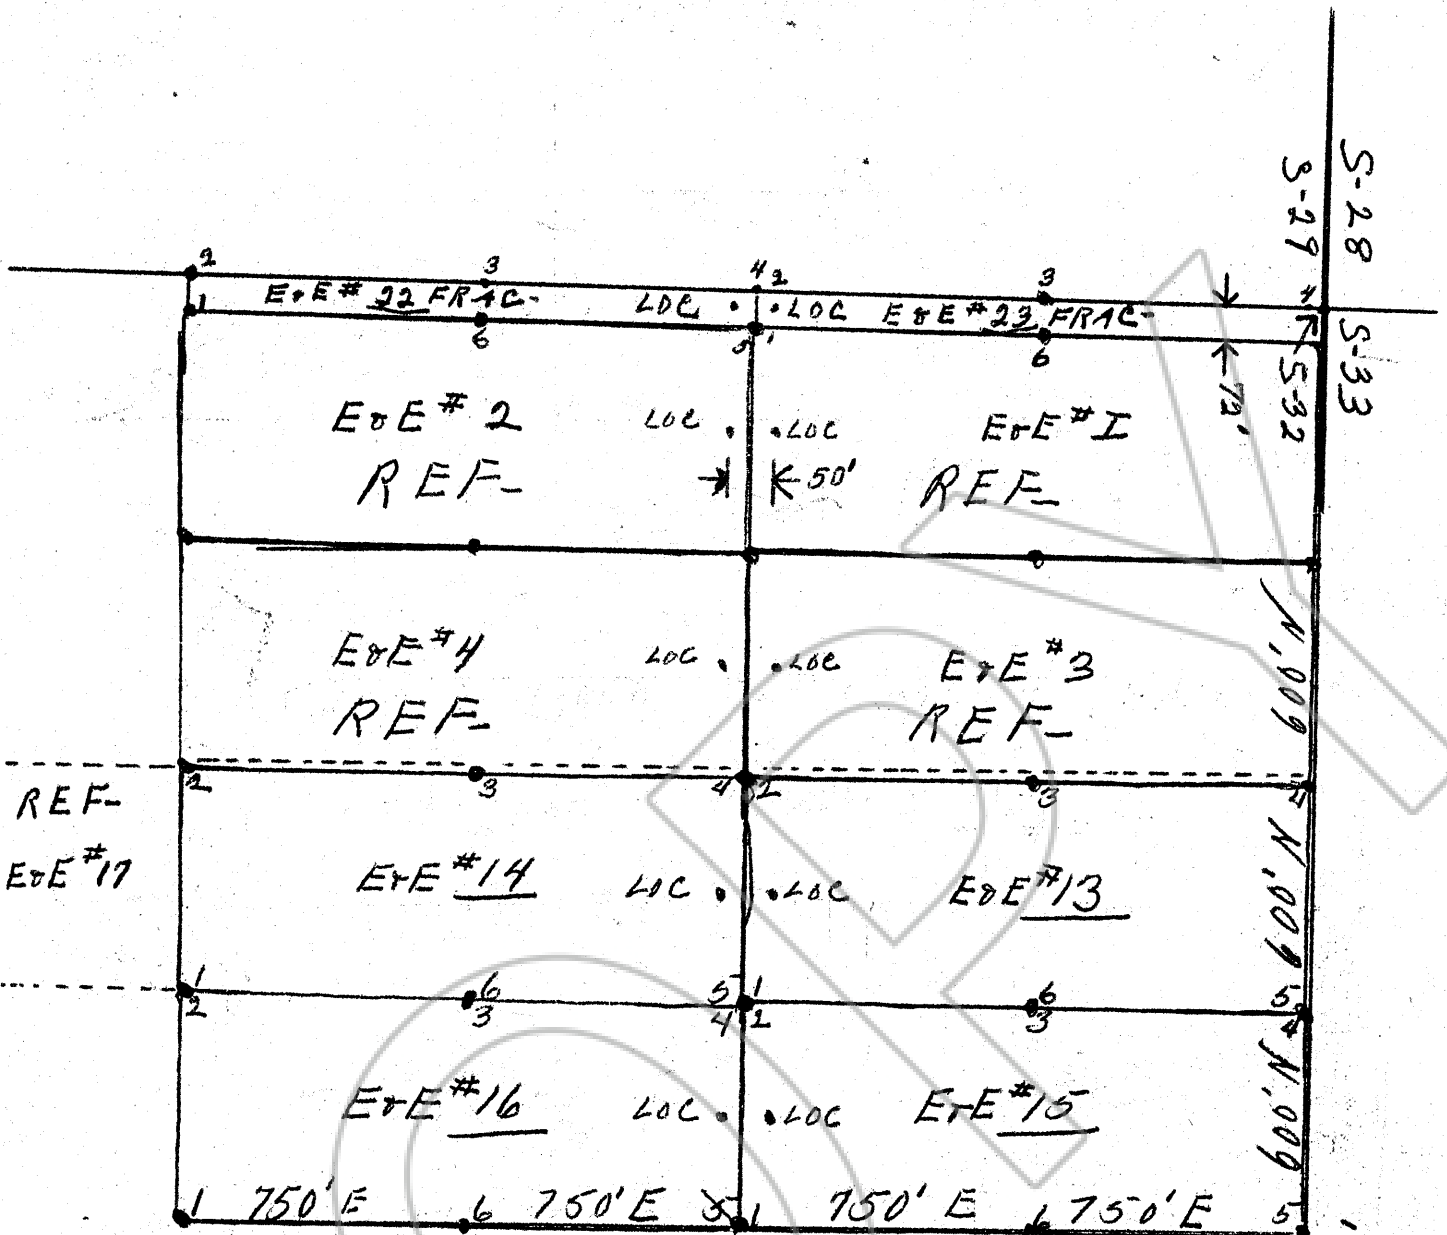 S-28
S-29
2 3 4 2 3 4
E&E # 22 FRAC- LOC LOC E&E # 23 FRAC-
1 6 5 1 6
S-33
S-32
72'
E&E # 2 LOC LOC E&E # I
REF- 50' REF-
E&E # 4 LOC LOC E&E # 3
REF- REF-
600' N
2 3 4 2 3 4
REF-
E&E # 17
E&E # 14 LOC LOC E&E # 13
600' N
1 6 5 1 6 5
2 3 4 2 3 4
E&E # 16 LOC LOC E&E # 15
600' N
1 750' E 6 750' E 5 1 750' E 6 750' E 5
COPY